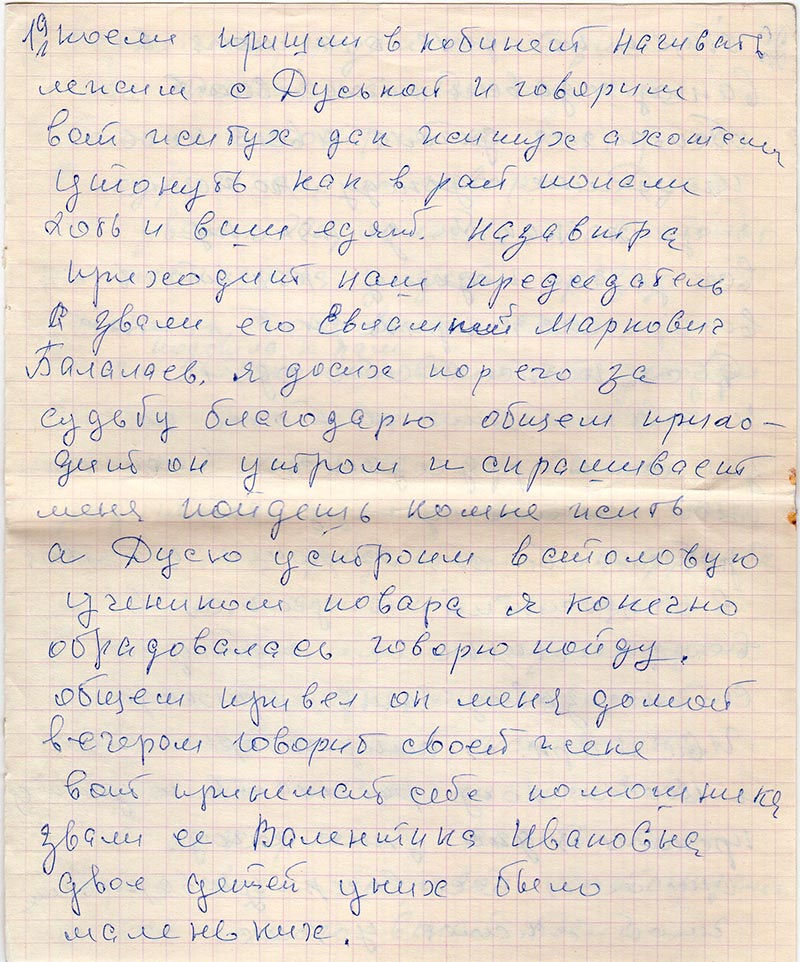 19 поели пришли в кобинет начивать
лежим с Дуськой и говорим
вот петух дак петух а хотели
утонуть как в рай попали
и вши едят. Назавтра
приходит наш председатель
А звали его Евлампий Маркович
Балалаев, я досих пор его за
судьбу благодарю общем прихо-
дит он утром и спрашивает
меня пойдешь комне жить
а Дусю устроим встоловую
учеником повара я конечно
обрадовалась говорю пойду.
общем привел он меня домой
вечером говорит своей жене
вот принемай себе помошника
звали ее Валентина Ивановна
двое детей уних было
маленьких.